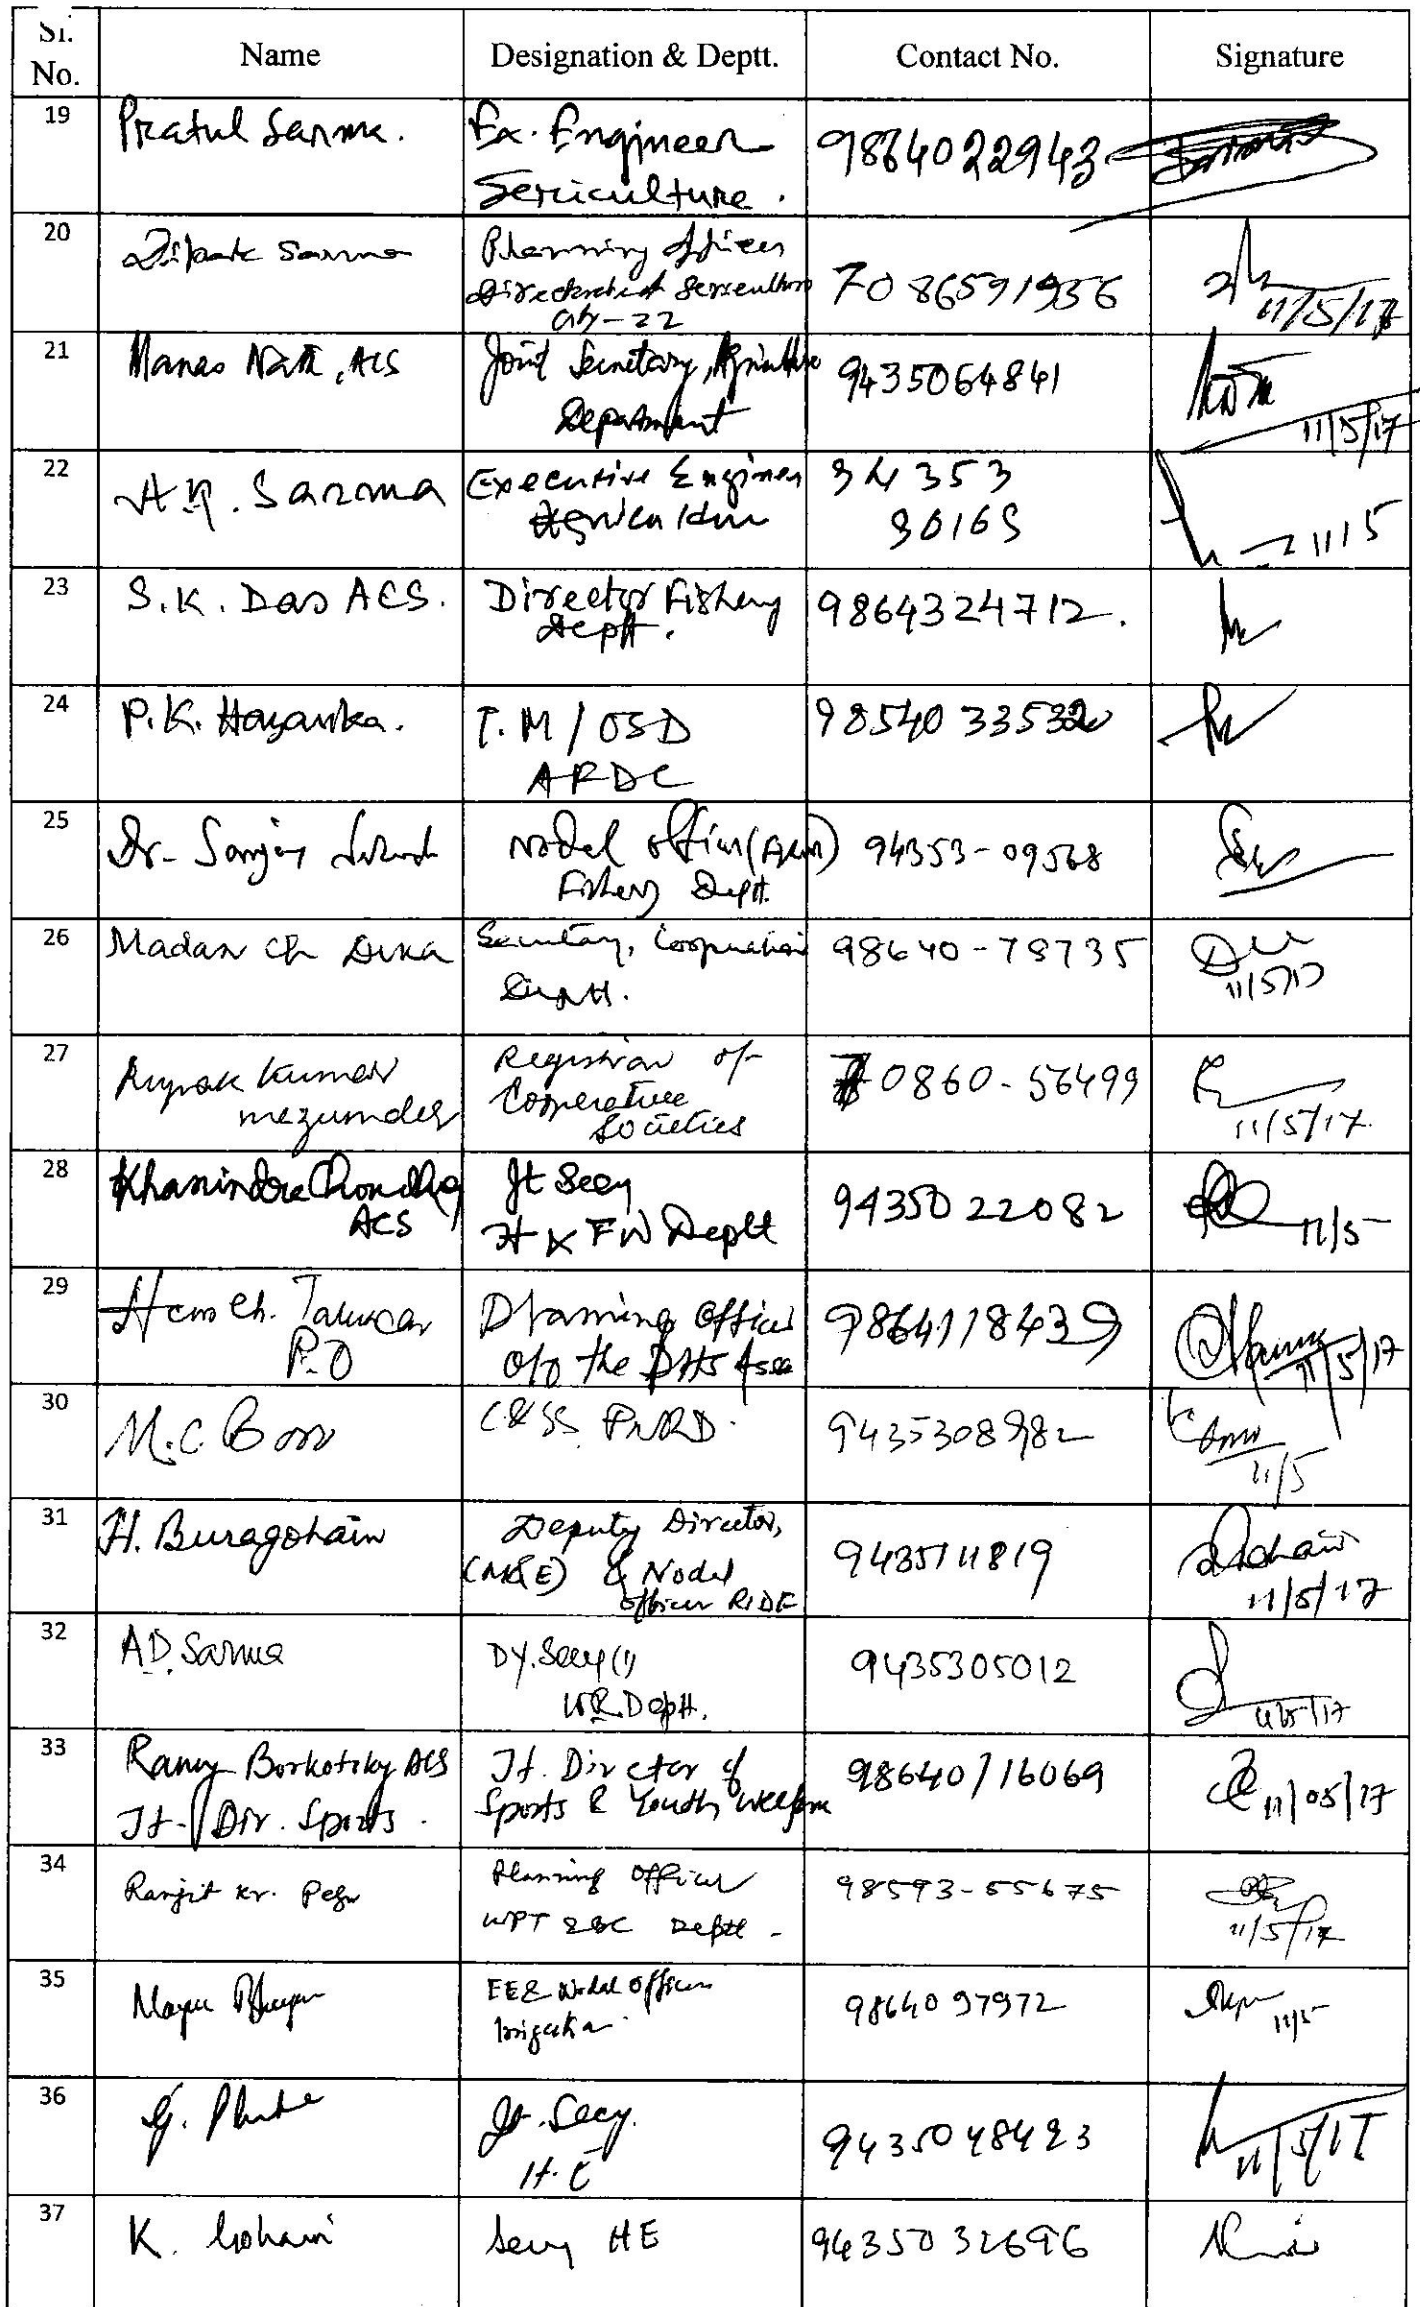 Sl. No.
Name
Designation & Deptt.
Contact No.
Signature
19
Pratul Sarma.
Ex. Engineer
Sericulture.
9864022943
20
Dipak Sarma
Planning Officer
Directorate of Sericulture
Ghy-22
7086591956
11/5/17
21
Manas Nath, ACS
Joint Secretary, Agriculture
Department
9435064841
11/5/17
22
Sarma
Executive Engineer
Agriculture
11/5
23
S.K. Das ACS.
Director Fishery
Deptt.
9864324712.
24
P.K. Hazarika.
T.M / OSD
ARDC
25
Dr. Sanjoy
Nodal Officer
Fishery Deptt.
94353-09568
26
Madan Ch Deka
Secretary, Cooperation
Deptt.
98640-78735
11/5/17
27
Kumar
mazumder
Registrar of
Cooperative
Societies
70860-56499
11/5/17.
28
Khanindra Choudhury
ACS
Jt Secy
H & FW Deptt
9435022082
11/5
29
Hem Ch. Talukdar
P.O
Planning Officer
O/o the DHS
9864118439
11/5/17
30
M.C Boro
PnRD.
11/5
31
H. Buragohain
Deputy Director,
& Nodal
Officer RIDF
9435111819
11/5/17
32
A.D. Sarma
DY. Secy (i)
W.R. Deptt.
9435305012
11/5/17
33
Borkotoky ACS
Jt. Dir. Sports.
Jt. Director of
Sports & Youth Welfare
98640/16069
11/05/17
34
Ranjit Kr. Pegu
Planning Officer
WPT & BC Deptt -
98593-55675
11/5/17
35
EE & Nodal Officer
Irrigation
9864097972
11/5
36
G.
Jt. Secy.
H.E
9435048423
11/5/17
37
K. Gohain
Secy HE
9435032696